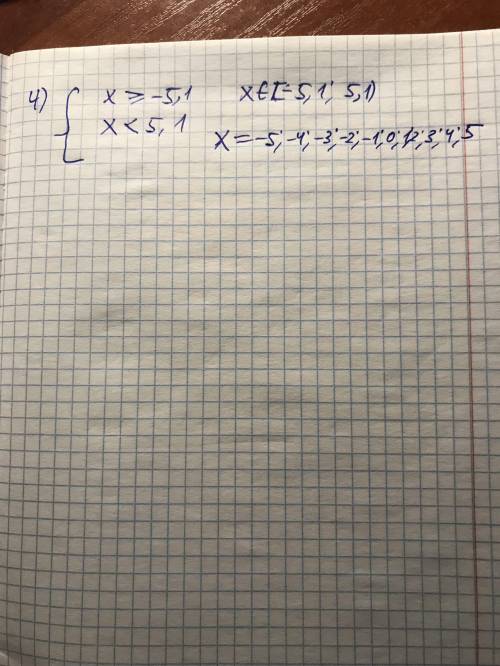 4) { x ≥ -5,1 x ∈ [-5,1; 5,1)
x < 5,1
x = -5; -4; -3; -2; -1; 0; 1; 2; 3; 4; 5